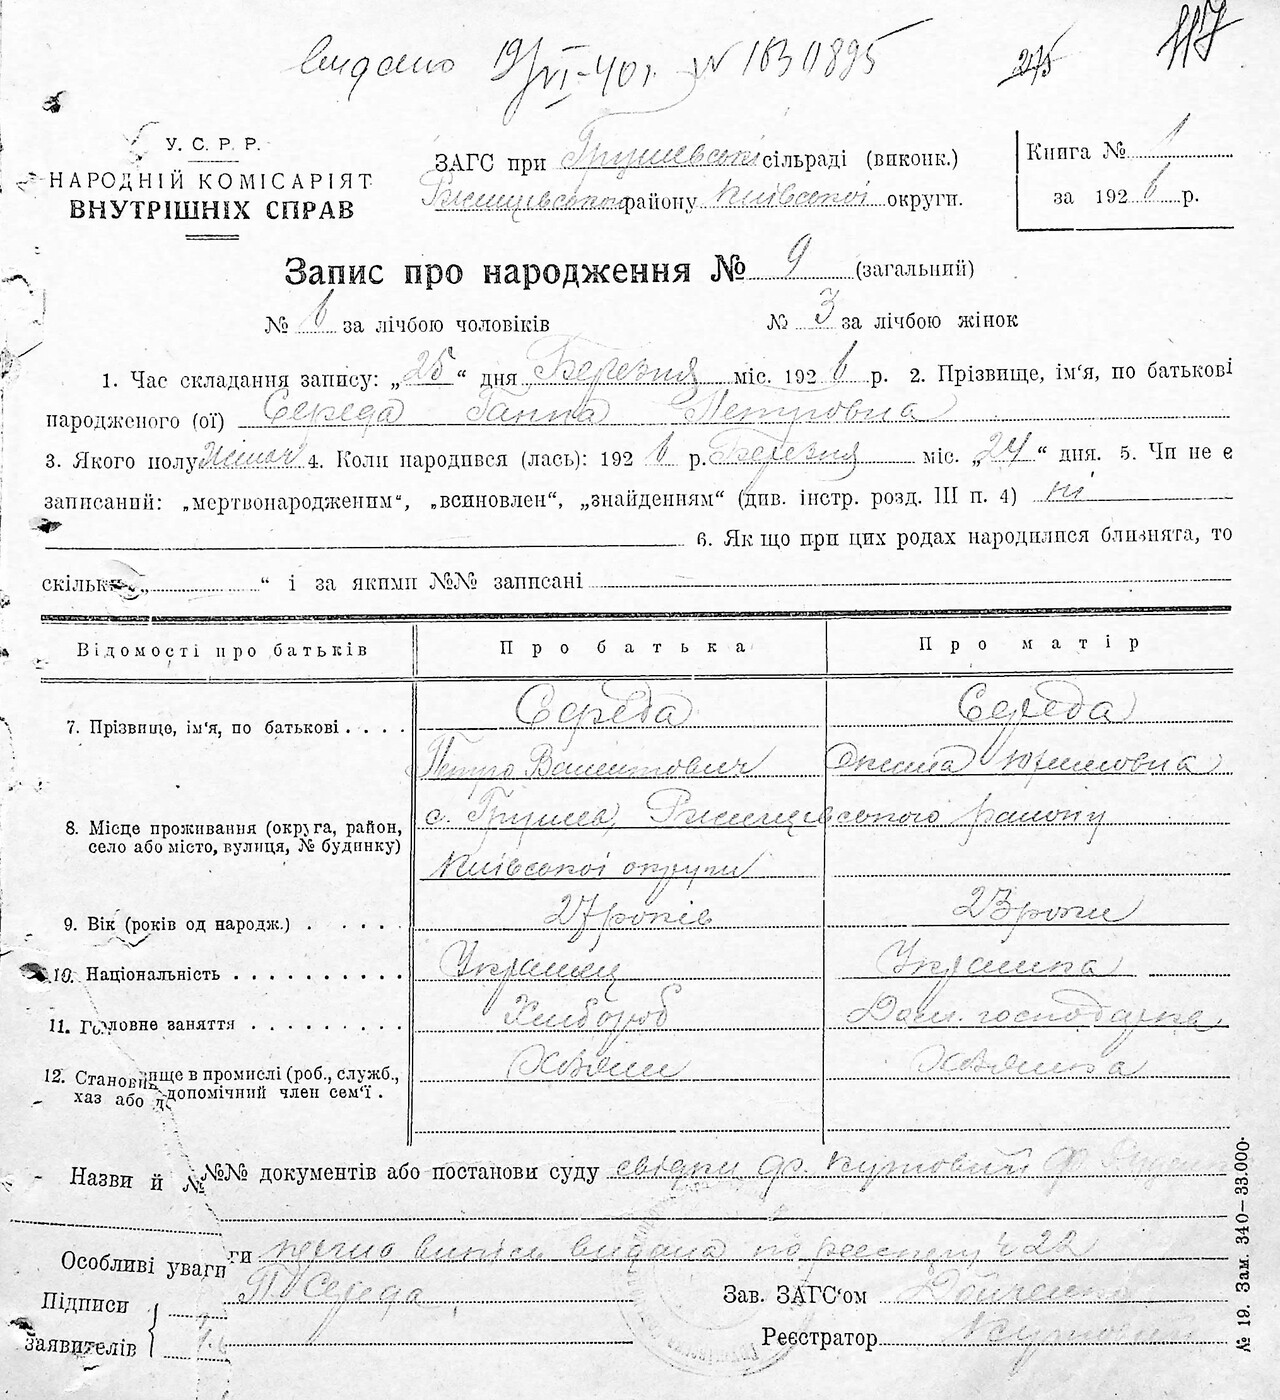 видано 19/VI-40 р. N 1630895
275
117
У. С. Р. Р.
НАРОДНІЙ КОМІСАРІЯТ
ВНУТРІШНІХ СПРАВ
ЗАГС при Грушевській сільраді (виконк.)
Ржищевського району Київської округи.
Книга № 1
за 1926 р.
Запис про народження № 9 (загальний)
№ 6 за лічбою чоловіків № 3 за лічбою жінок
1. Час складання запису: „25“ дня Березня міс. 1926 р. 2. Прізвище, ім'я, по батькові
народженого (ої) Середа Ганна Петровна
3. Якого полу жіноч 4. Коли народився (лась): 1926 р. Березня міс. „24“ дня. 5. Чи не є
записаний: „мертвонародженим“, „всиновлен“, „знайденням“ (див. інстр. розд. III п. 4) ні
6. Як що при цих родах народилися близнята, то
скільки „ “ і за якими №№ записані
Відомості про батьків Про батька Про матір
7. Прізвище, ім'я, по батькові . . . . Середа Середа
Петро Валентович
8. Місце проживання (округа, район, с. Грушев, Ржищевського району
село або місто, вулиця, № будинку) Київської округи
9. Вік (років од народж.) . . . . . 27 років 23 роки
10. Національність . . . . . . . . . . Українец Українка
11. Головне заняття . . . . . . . . . Хлібороб Дом. господарка
12. Становище в промислі (роб., служб., Хозяин Хозяйка
хаз або допомічний член сем'ї .
Назви й №№ документів або постанови суду свідки гр. Кутовий Ф
Особливі уваги перша випись видана по реєстру ч 22
Підписи П Середа Зав. ЗАГС'ом
заявителів Реєстратор Кутовий
№ 19. Зам. 340—33.000.